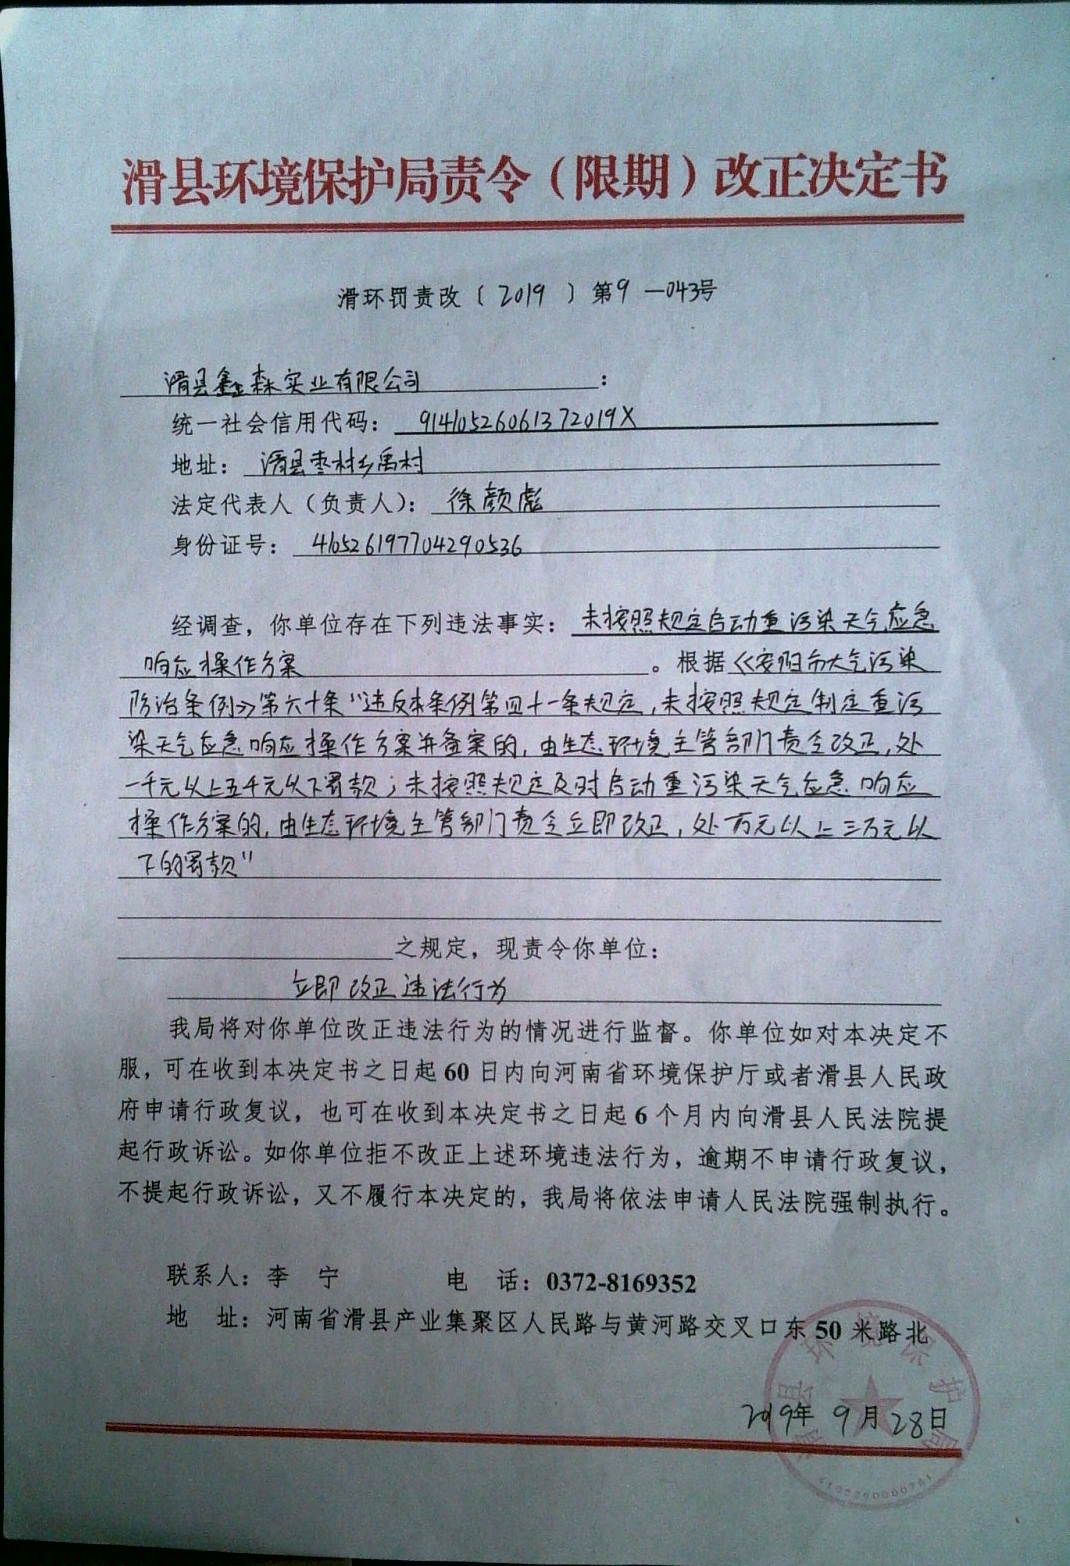 滑县环境保护局责令（限期）改正决定书
滑环罚责改〔2019〕第9—043号
滑县鑫森实业有限公司：
统一社会信用代码：91410526061372019X
地址：滑县枣村乡禹村
法定代表人（负责人）：徐颜彪
身份证号：410526197704290536
经调查，你单位存在下列违法事实：未按照规定启动重污染天气应急
响应操作方案。根据《安阳市大气污染
防治条例》第六十条"违反本条例第四十一条规定，未按照规定制定重污
染天气应急响应操作方案并备案的，由生态环境主管部门责令改正，处
一千元以上五千元以下罚款；未按照规定及时启动重污染天气应急响应
操作方案的，由生态环境主管部门责令立即改正，处万元以上三万元以
下的罚款"
之规定，现责令你单位：
立即改正违法行为
我局将对你单位改正违法行为的情况进行监督。你单位如对本决定不
服，可在收到本决定书之日起60日内向河南省环境保护厅或者滑县人民政
府申请行政复议，也可在收到本决定书之日起6个月内向滑县人民法院提
起行政诉讼。如你单位拒不改正上述环境违法行为，逾期不申请行政复议，
不提起行政诉讼，又不履行本决定的，我局将依法申请人民法院强制执行。
联系人：李 宁 电 话：0372-8169352
地 址：河南省滑县产业集聚区人民路与黄河路交叉口东50米路北
滑县环境保护局
2019年9月28日